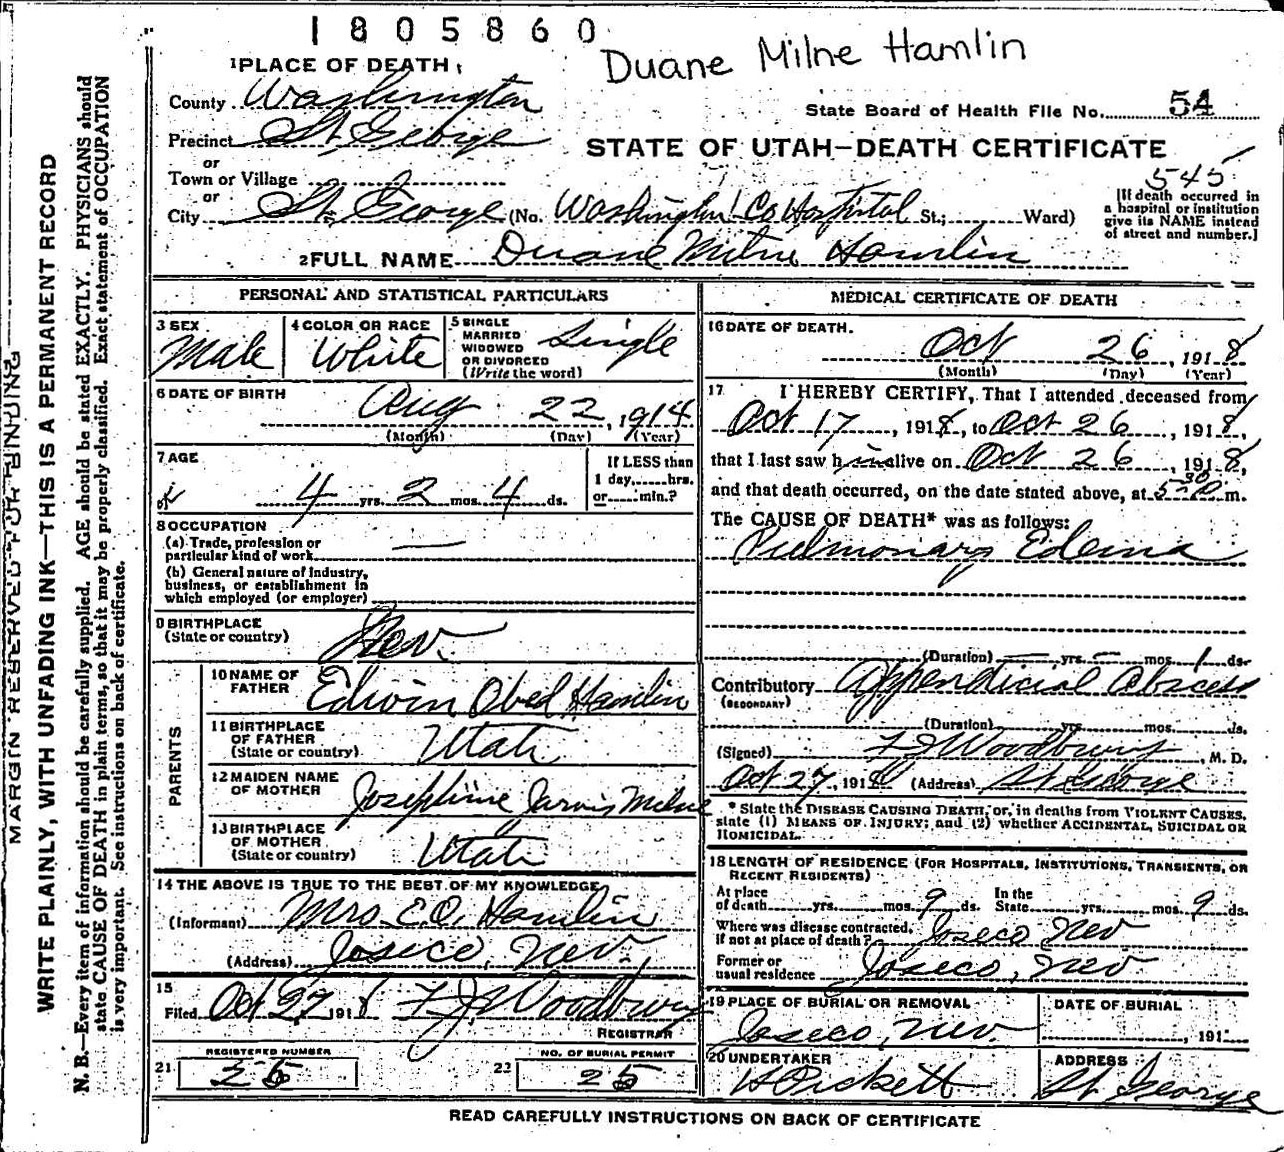 1805860
Duane Milne Hamlin
1 PLACE OF DEATH
County Washington
State Board of Health File No. 54
Precinct St. George
STATE OF UTAH—DEATH CERTIFICATE
or
Town or Village
545
or
City St. George (No. Washington Co Hospital St.; Ward)
[If death occurred in
a hospital or institution
give its NAME instead
of street and number.]
2 FULL NAME Duane Milne Hamlin
PERSONAL AND STATISTICAL PARTICULARS
3 SEX
Male
4 COLOR OR RACE
White
5 SINGLE
MARRIED
WIDOWED
OR DIVORCED
(Write the word)
Single
6 DATE OF BIRTH
Aug 22, 1914
(Month) (Day) (Year)
7 AGE
4 yrs. 2 mos. 4 ds.
If LESS than
1 day, hrs.
or min.?
8 OCCUPATION
(a) Trade, profession or
particular kind of work —
(b) General nature of Industry,
business, or establishment in
which employed (or employer)
9 BIRTHPLACE
(State or country) Nev.
PARENTS
10 NAME OF
FATHER Edwin Obed Hamlin
11 BIRTHPLACE
OF FATHER
(State or country) Utah
12 MAIDEN NAME
OF MOTHER Josephine Jarvis Milne
13 BIRTHPLACE
OF MOTHER
(State or country) Utah
14 THE ABOVE IS TRUE TO THE BEST OF MY KNOWLEDGE
(Informant) Mrs E.O. Hamlin
(Address) Joseco, Nev.
15
Filed Oct 27 1918 F J Woodbury
REGISTRAR
REGISTERED NUMBER
21
NO. OF BURIAL PERMIT
22 25
MEDICAL CERTIFICATE OF DEATH
16 DATE OF DEATH.
Oct 26, 1918
(Month) (Day) (Year)
17 I HEREBY CERTIFY, That I attended deceased from
Oct 17, 1918, to Oct 26, 1918,
that I last saw him alive on Oct 26, 1918,
and that death occurred, on the date stated above, at 5-30 m.
The CAUSE OF DEATH* was as follows:
Pulmonary Edema
(Duration) — yrs. — mos. 1 ds.
Contributory Appendicial Abscess
(SECONDARY)
(Duration) yrs. mos. ds.
(Signed) F J Woodbury, M. D.
Oct 27, 1918 (Address) St George
* State the DISEASE CAUSING DEATH, or, in deaths from VIOLENT CAUSES,
state (1) MEANS OF INJURY; and (2) whether ACCIDENTAL, SUICIDAL OR
HOMICIDAL.
18 LENGTH OF RESIDENCE (FOR HOSPITALS, INSTITUTIONS, TRANSIENTS, OR
RECENT RESIDENTS)
At place
of death yrs. mos. 9 ds.
In the
State yrs. mos. 9 ds.
Where was disease contracted,
if not at place of death? Joseco Nev
Former or
usual residence Joseco, Nev
19 PLACE OF BURIAL OR REMOVAL
Joseco, Nev.
DATE OF BURIAL
191
20 UNDERTAKER
H Pickett
ADDRESS
St George
READ CAREFULLY INSTRUCTIONS ON BACK OF CERTIFICATE
MARGIN RESERVED FOR BINDING
WRITE PLAINLY, WITH UNFADING INK—THIS IS A PERMANENT RECORD
N. B.—Every item of information should be carefully supplied. AGE should be stated EXACTLY. PHYSICIANS should
state CAUSE OF DEATH in plain terms, so that it may be properly classified. Exact statement of OCCUPATION
is very important. See instructions on back of certificate.